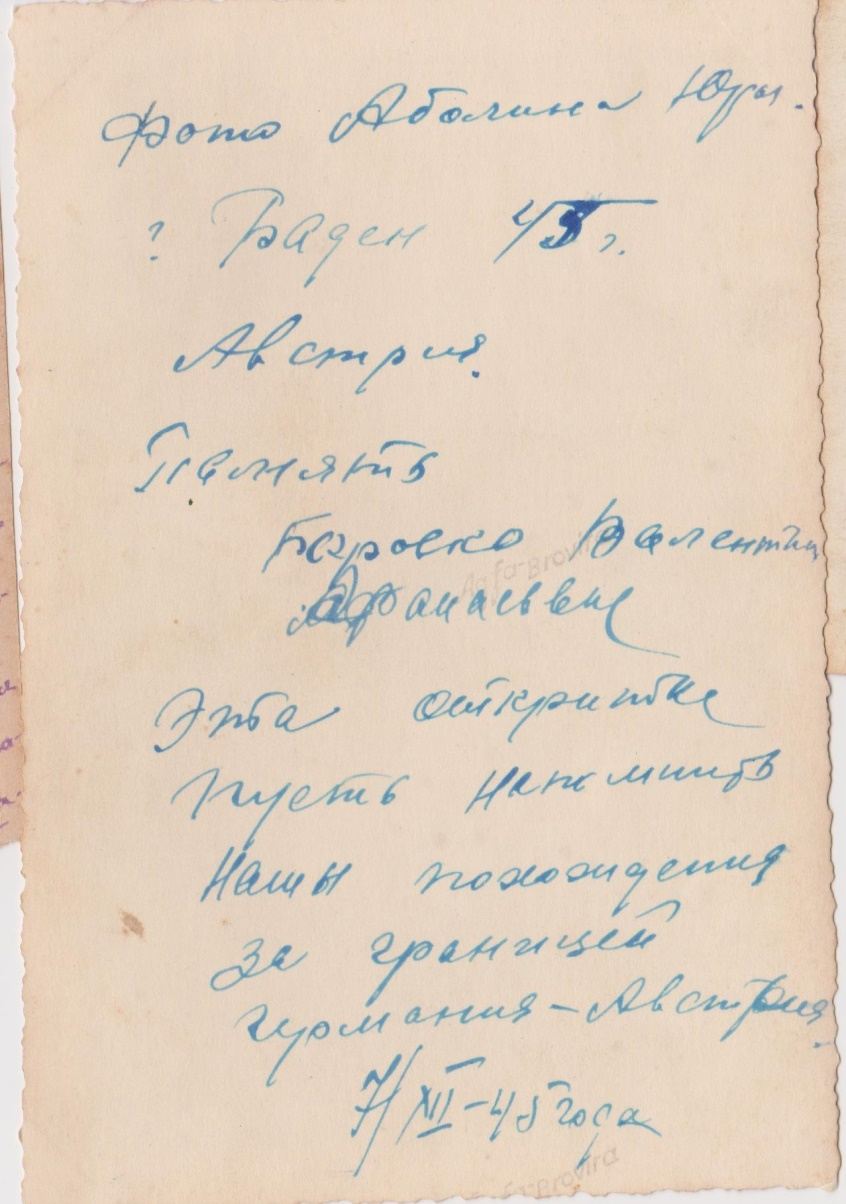 Фото Аболина Юры.
г. Баден 45 г.
Австрия.
Память
Валентин
Афанасьевне
Эта открытка
пусть напомнить
Нашы похождения
за границей
Германия – Австрия.
7/XII – 45 года
Agfa-Brovira
fa-Brovira